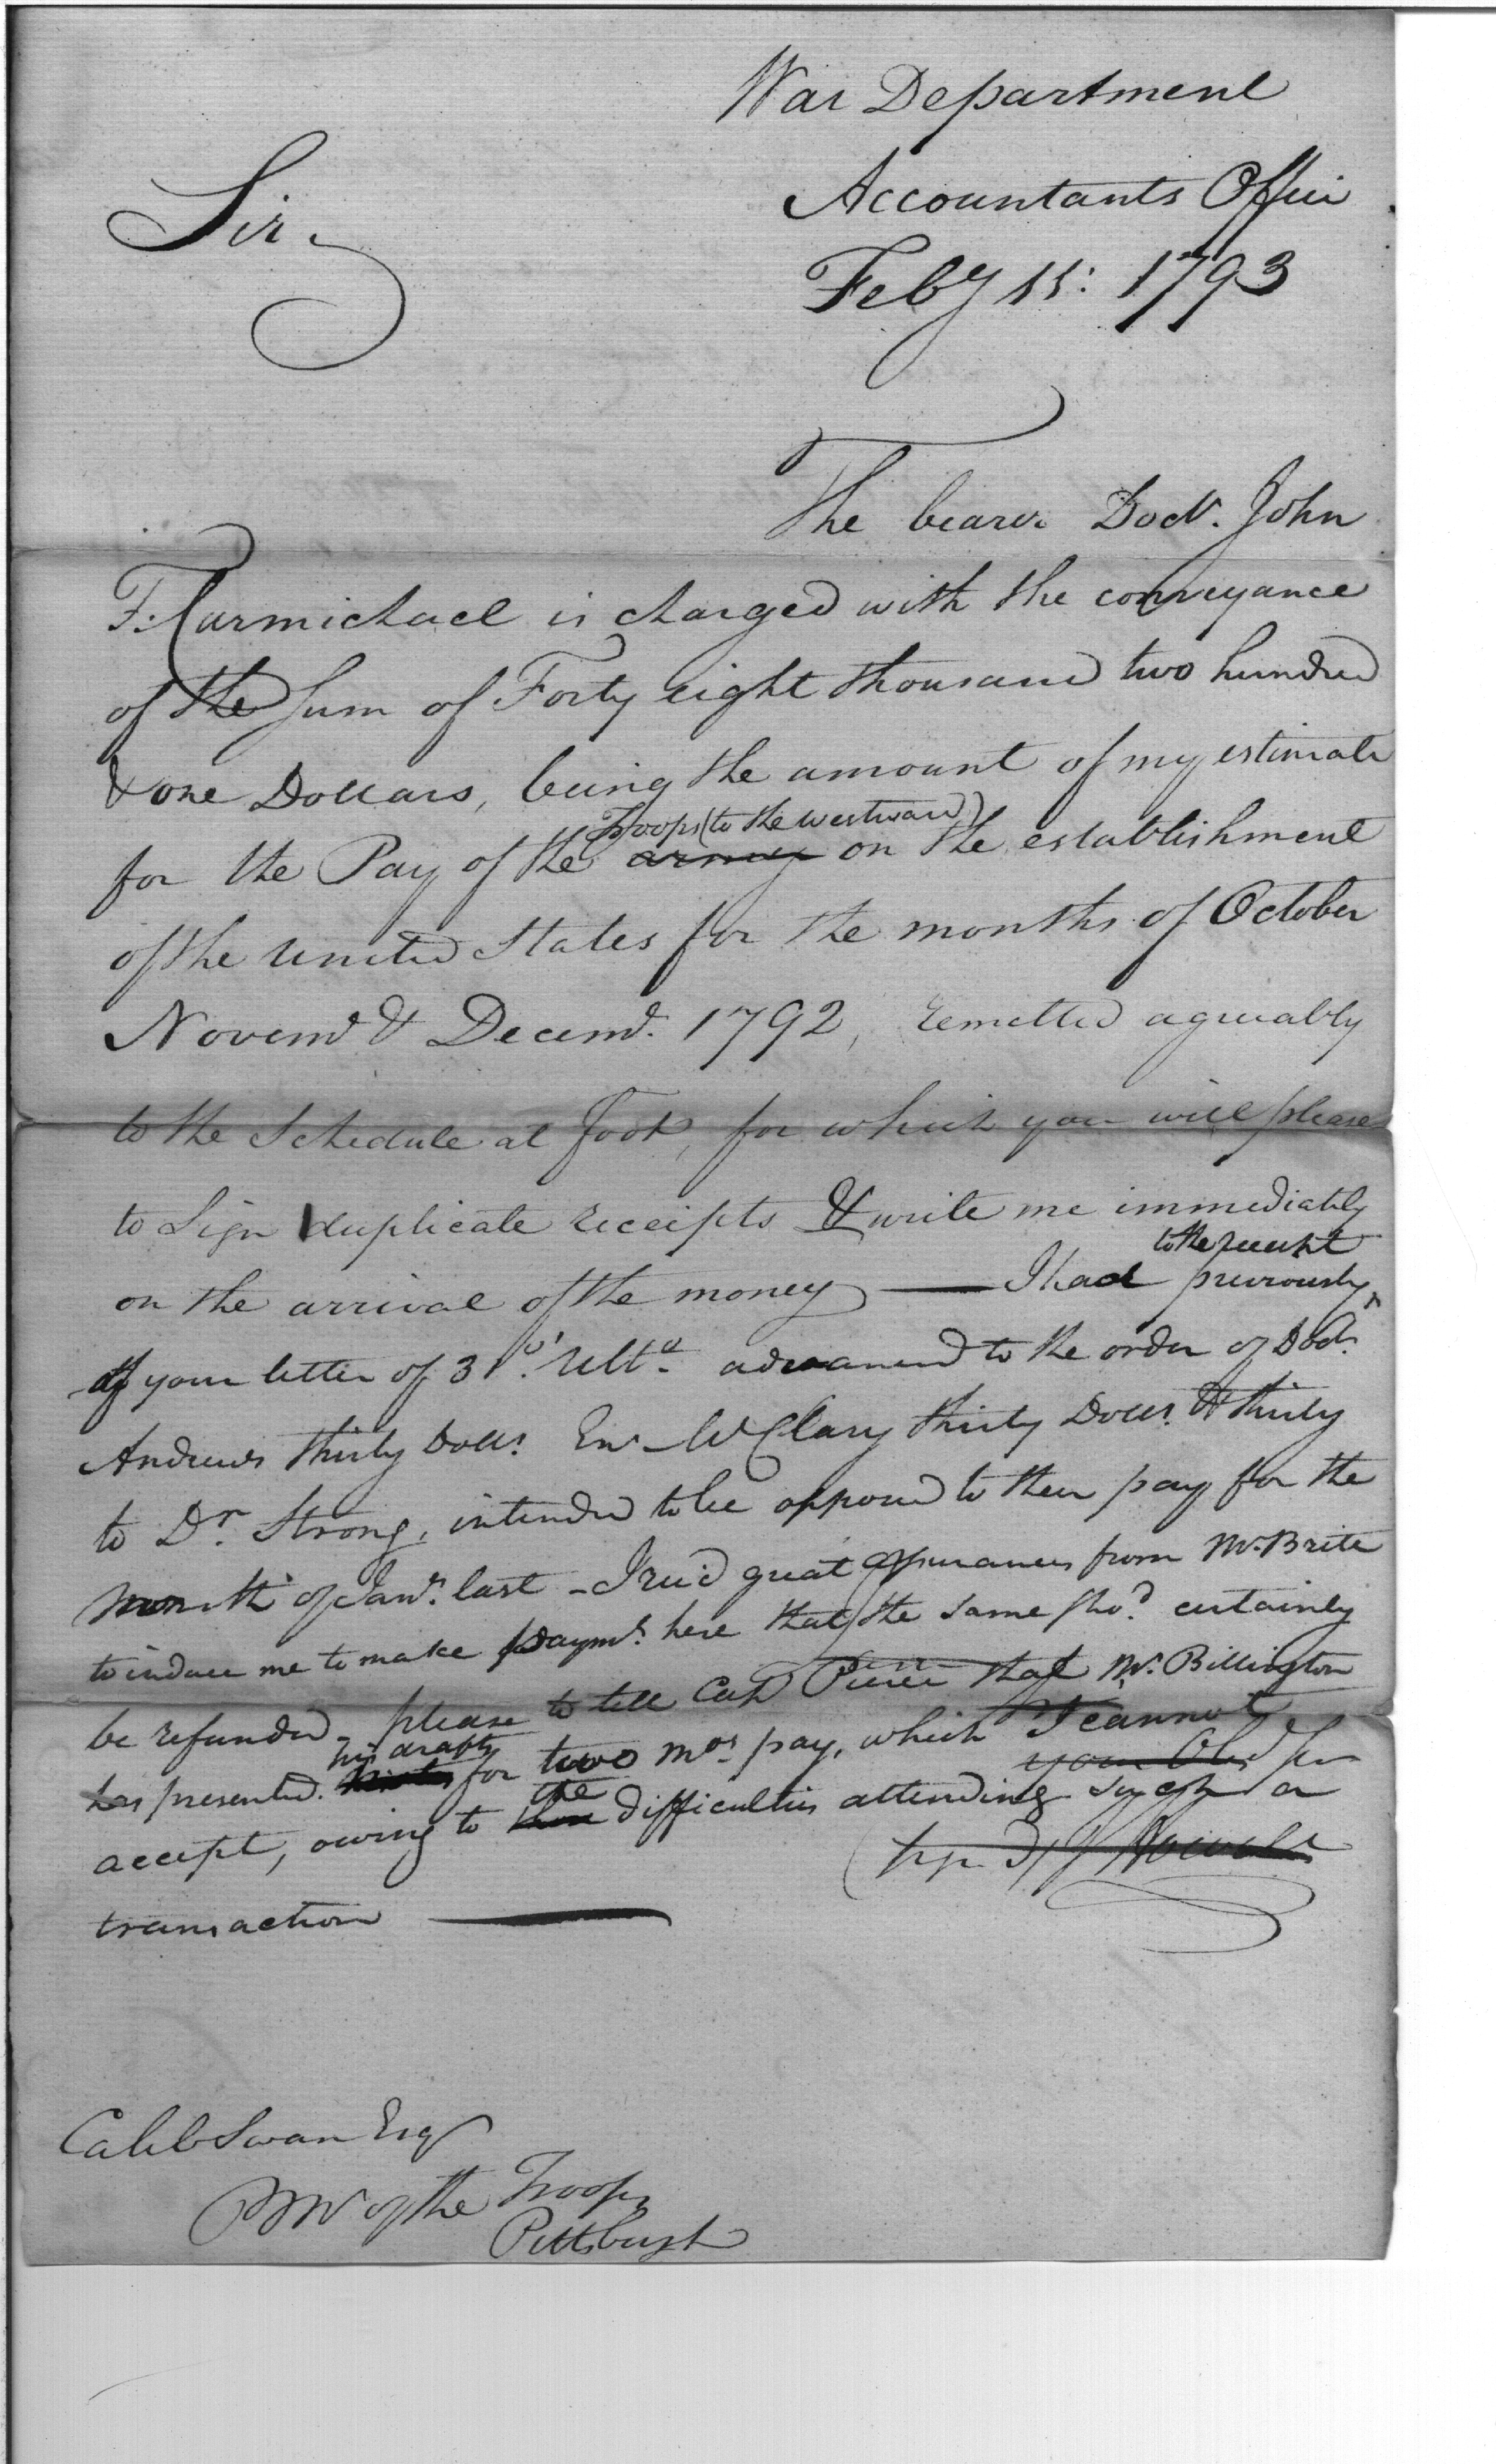 War Department
Accountants Office
Sir,
Feby 11: 1793
The bearer Doctr. John
F. Carmichael is charged with the conveyance
of the Sum of Forty eight thousand two hundred
& one Dollars, being the amount of my estimate
Troops (to the westward)
for the Pay of the army on the establishment
of the United States for the months of October
Novemr & Decemr. 1792, remitted agreeably
to the Schedule at foot, for which you will please
to Sign duplicate receipts & write me immediately
to the receipt
on the arrival of the money — I had previously
of your letter of 31st. Ulto. advanced to the order of Doctr.
Andrews thirty Dolls. Ens McClary thirty Dolls. & thirty
to Dr. Strong, intended to be opposed to their pay for the
month of Jany. last - I rec'd great assurances from Mr. Brite
to induce me to make paymt. here that the same shod. certainly
be refunded - please to tell Capt Pierce that Mr. Billington
his drafts
has presented. for two mos. pay, which I cannot
your Obd Ser
the
accept, owing to these difficulties attending such a
(sign'd) J Howell
transaction —
Caleb Swan Esq
PMr of the Troops
Pittsburgh